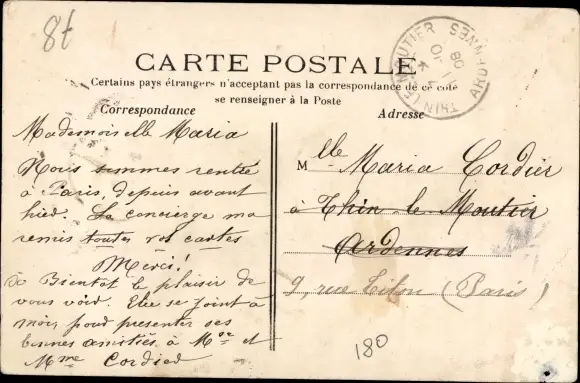 8t
CARTE POSTALE
Certains pays étrangers n'acceptant pas la correspondance de ce côté
se renseigner à la Poste
Correspondance
Mademoiselle Maria
Nous sommes rentré
à Paris, depuis avant
hied. La concierge ma
remis toutes vos cartes
Mercis!
De Bientot le plaisir de
vous void. Elle se joint à
mois poud presenter ses
bonnes amitiés à Mr et
Mme Cordied
Adresse
Mlle Maria Cordier
à Thin le Moutier
Ardennes
9, rue Titon (Paris)
180
THIN LE MOUTIER
ARDENNES